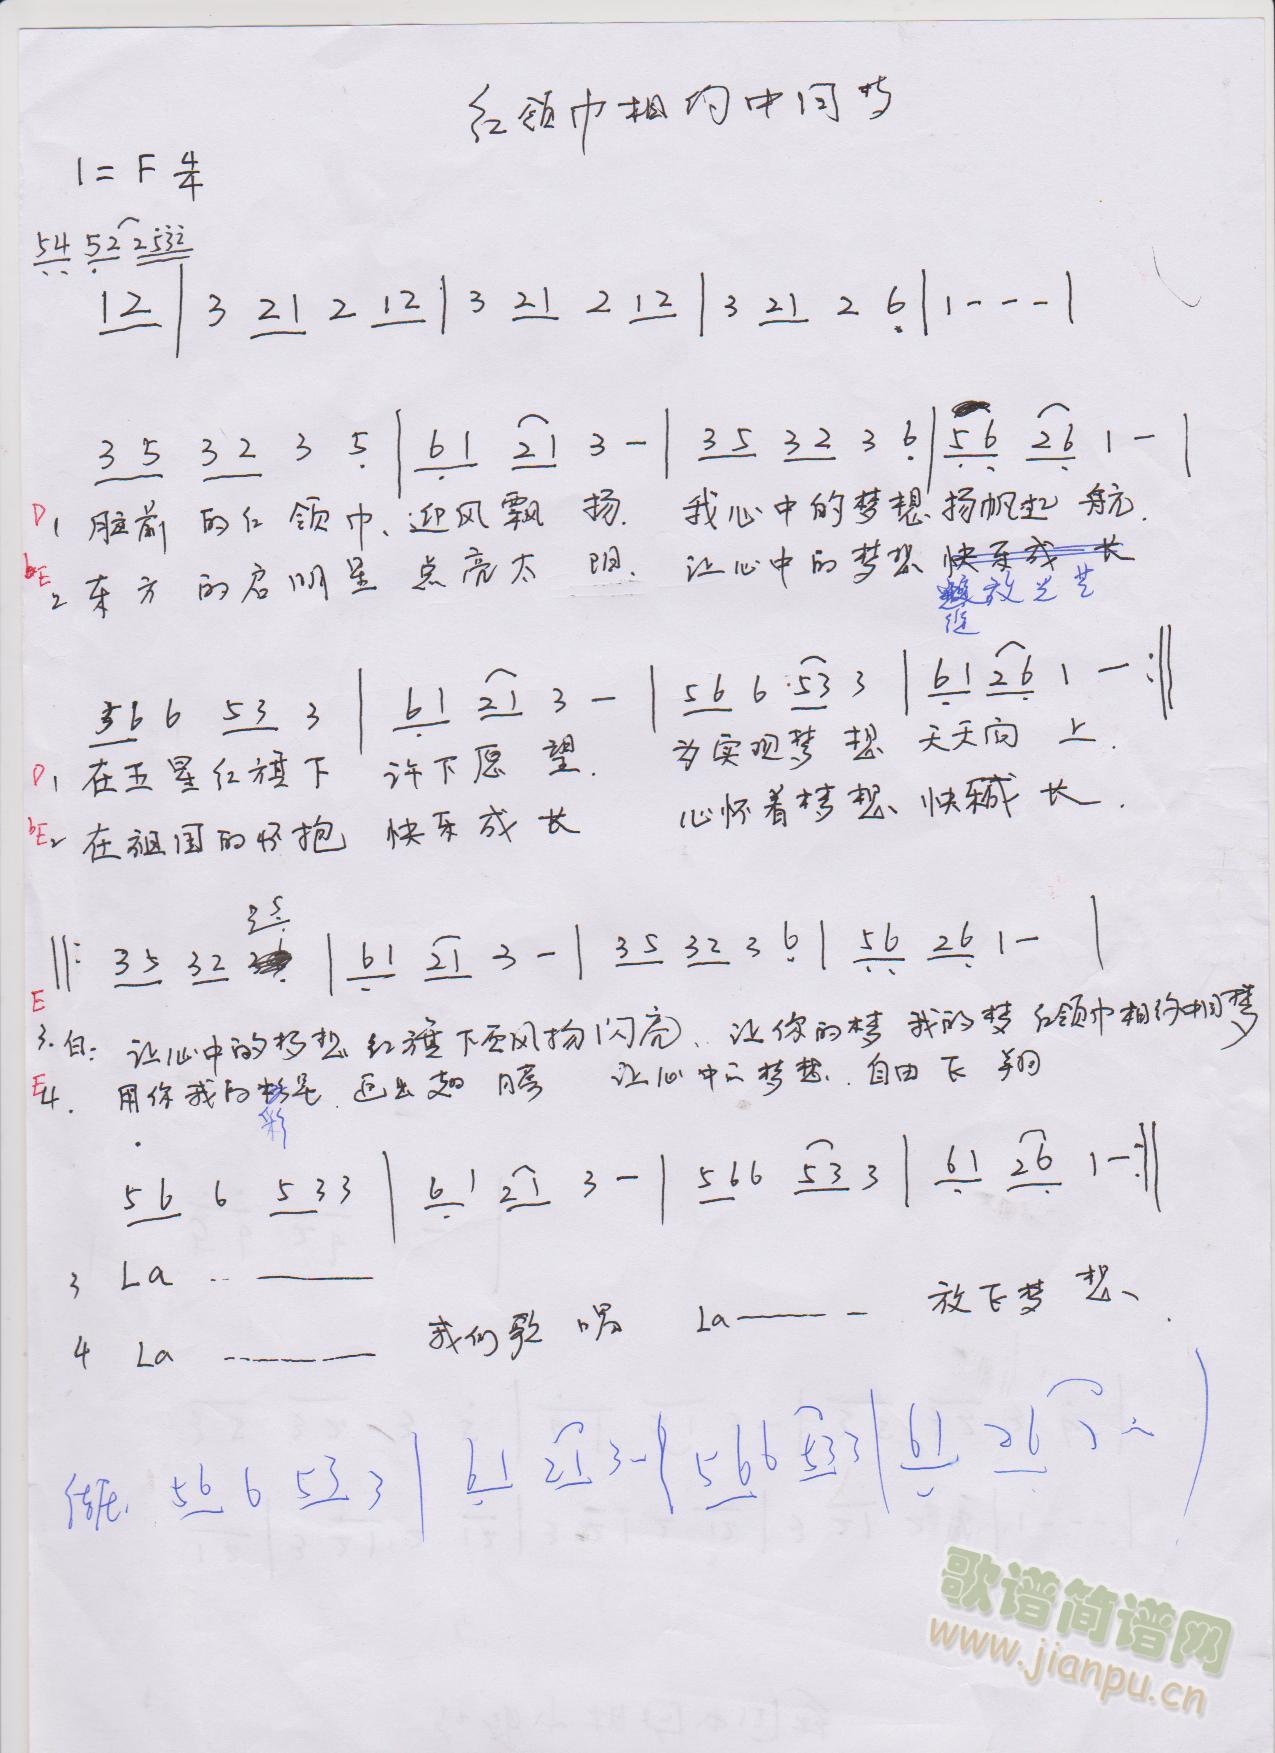 红领巾相约中国梦
1=F 4/4
54 52 2532
12 | 3 21 2 12 | 3 21 2 12 | 3 21 2 6 | 1 - - - |
35 32 3 5 | 61 21 3 - | 35 32 3 6 | 56 26 1 - |
D 1 胸前的红领巾、迎风飘扬. 我心中的梦想扬帆起航.
bE 2 东方的启明星点亮太阳. 让心中的梦想快乐成长
放光芒
绽
56 6 53 3 | 61 21 3 - | 56 6 53 3 | 61 26 1 - :||
D 1 在五星红旗下 许下愿望. 为实现梦想 天天向上.
bE 2 在祖国的怀抱 快乐成长 心怀着梦想 快乐成长.
3 5
||: 35 32 | 61 21 3 - | 35 32 3 6 | 56 26 1 - |
E
3. 白: 让心中的梦想 红旗下 闪亮、让你的梦 我的梦 红领巾相约中国梦
E
4. 用你我的 翅膀 让心中的梦想. 自由飞翔
彩
56 6 53 3 | 61 21 3 - | 56 6 53 3 | 61 26 1 - :||
3 La .. ———
4 La ——— 我们歌唱 La ——— - 放飞梦想、.
56 6 53 3 | 61 21 3 - | 56 6 53 3 | 61 26 1 - |
歌谱简谱网
www.jianpu.cn